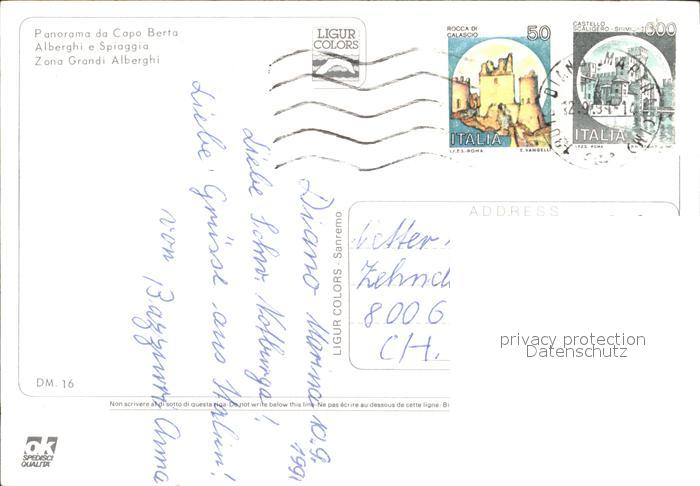 Panorama da Capo Berta
Alberghi e Spiaggia
Zona Grandi Alberghi
LIGUR
COLORS
ROCCA DI
CALASCIO
50
ITALIA
I.P.Z.S. ROMA E. VANGELLI
CASTELLO
SCALIGERO - SIRMIONE
600
ITALIA
I.P.Z.S. ROMA
DIANO MARINA
Diano Marina 10.9.
1991
Liebe Schw. Notburga!
Liebe Grüsse aus Italien!
von
ADDRESS
Zehnd
8006
CH.
LIGUR COLORS - Sanremo
privacy protection
Datenschutz
DM. 16
Non scrivere al di sotto di questa riga - Do not write below this line - Ne pas écrire au dessous de cette ligne - Bi
ok
SPEDISCI
QUALITÀ